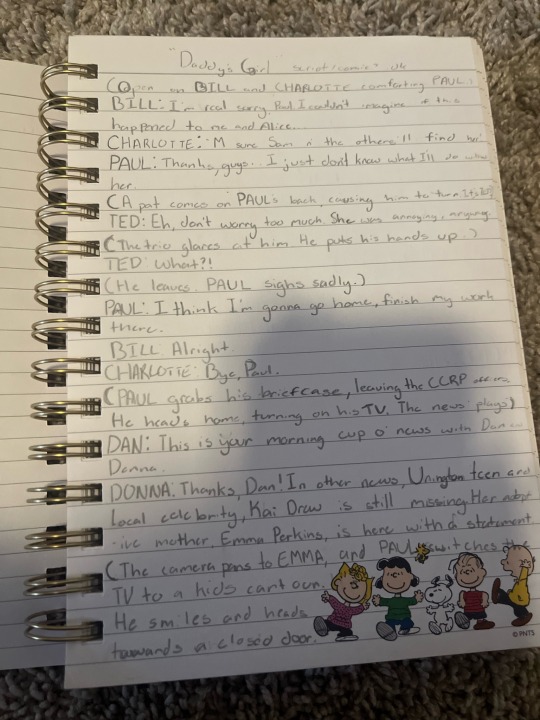 "Daddy's Girl" script/comic?
(Open on BILL and CHARLOTTE comforting PAUL.)
BILL: I'm real sorry, Paul. I couldn't imagine if this
happened to me and Alice...
CHARLOTTE: 'M sure Sam n the others'll find her.
PAUL: Thanks, guys.. I just don't know what I'll do
her.
(A pat comes on PAUL's back, causing him to turn. It's
TED: Eh, don't worry too much. She was annoying, anyway.
(The trio glares at him. He puts his hands up.)
TED: What?!
(He leaves. PAUL sighs sadly.)
PAUL: I think I'm gonna go home, finish my work
there.
BILL: Alright.
CHARLOTTE: Bye, Paul.
(PAUL grabs his briefcase, leaving the CCRP offices.
He heads home, turning on his TV. The news plays)
DAN: This is your morning cup o' news with Dan
Donna.
DONNA: Thanks, Dan! In other news, teen and
local celebrity, Kai Drew is still missing. Her adopt
-ive mother, Emma Perkins, is here with a statement
(The camera pans to EMMA, and PAUL switches the
TV to a kids cartoon.
He smiles and heads
towards a closed door.
© PNTS